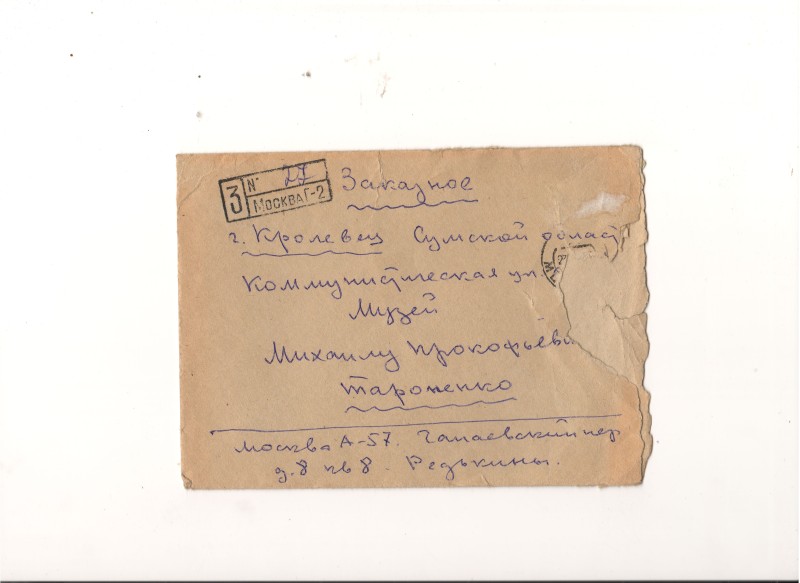 З № 27 Заказное
Москва Г-2
г. Кролевец Сумской област
Коммунистическая ул
Музей
Михаилу Прокофьеви
Тароненко
Москва А-57. Чапаевский пер
д. 8 кв 8. Редькины.